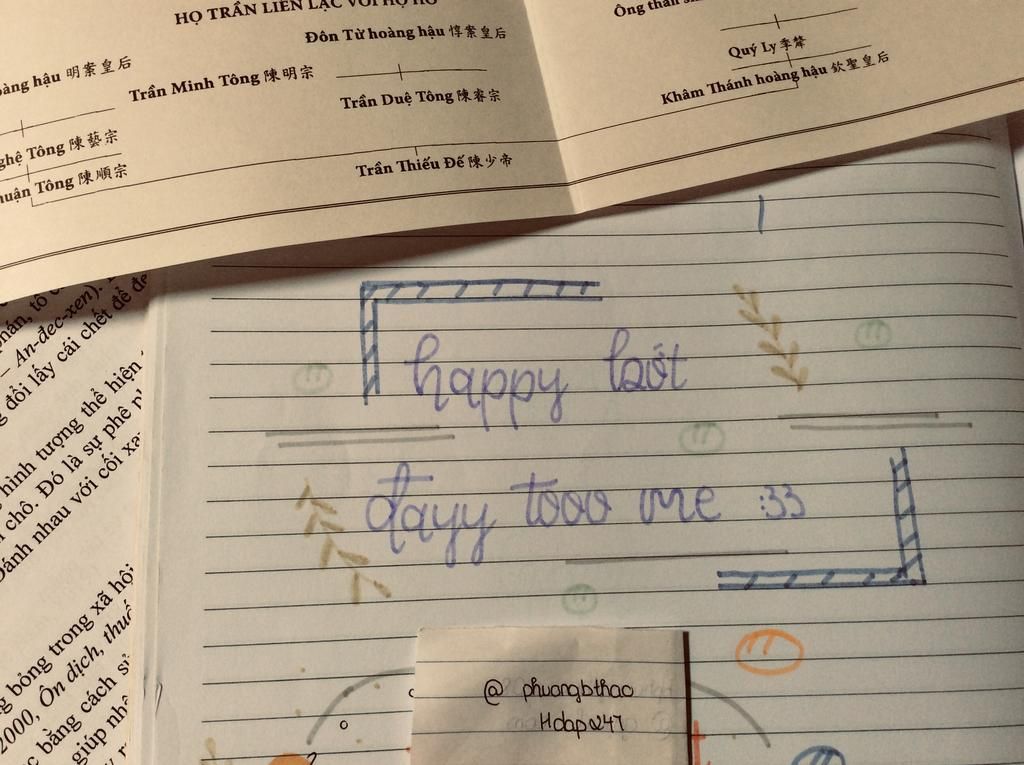 HỌ TRẦN LIÊN LẠC VỚI HỌ HỒ
Đôn Từ hoàng hậu 惇慈皇后
hoàng hậu 明慈皇后
Trần Minh Tông 陳明宗
Trần Duệ Tông 陳睿宗
Nghệ Tông 陳藝宗
Thuận Tông 陳順宗
Trần Thiếu Đế 陳少帝
Ông thân
Quý Ly 季犛
Khâm Thánh hoàng hậu 欽聖皇后
– An-đec-xen).
đổi lấy cái chết để
hình tượng thể hiện
chõ. Đó là sự phê
Đánh nhau với cối xa
bóng trong xã hội
2000, Ôn dịch, thuố
bằng cách sử
giúp nhâ
happy bớt
đayy tooo me :33
@ phuongbthao
Hdap247